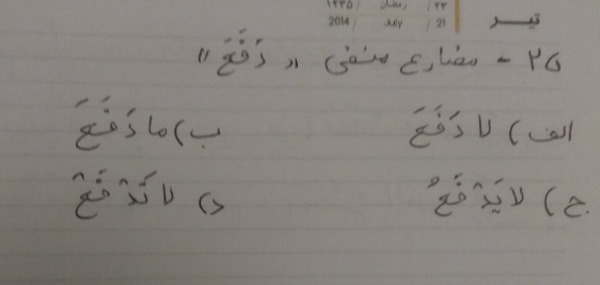 ١٤٣٥ / رمضان / ٢٣
تیر 2014 / July / 21
٢٥ - مضارع منفی " دَفَعَ "
الف) لا دَفَعَ ب) ما دَفَعَ
ج) لا یَدْفَعُ د) لا تَدْفَعْ